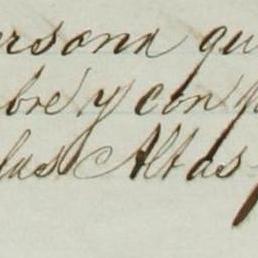 ersona qu
bre y con p
las Altas